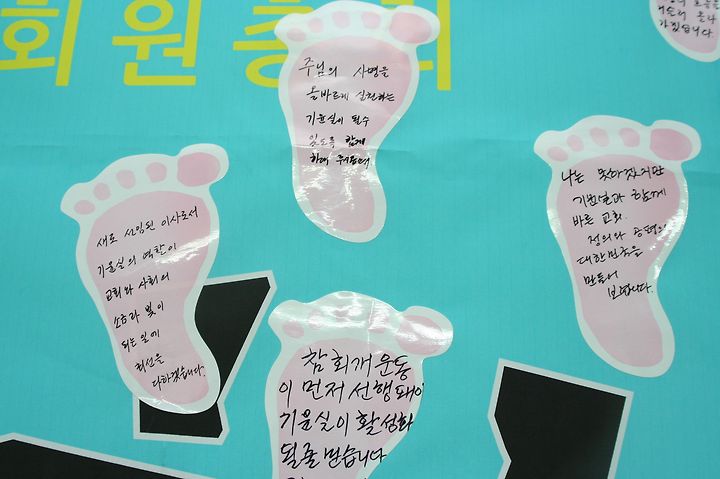 회원총회
주님의 사명을
올바르게 실천하는
기윤실이 될수
있도록 함께
하여 주옵소서
나는 못마땅하지만
기윤실과 함께
바른 교회,
정의와 공평의
대한민국을
만들어
보렵니다.
새로 선임된 이사로서
기윤실의 역할이
교회와 사회의
소금과 빛이
되는 일에
최선을
다하겠습니다.
참 회개 운동
이 먼저 선행돼야
기윤실이 활성화
될줄 믿습니다
가겠습니다